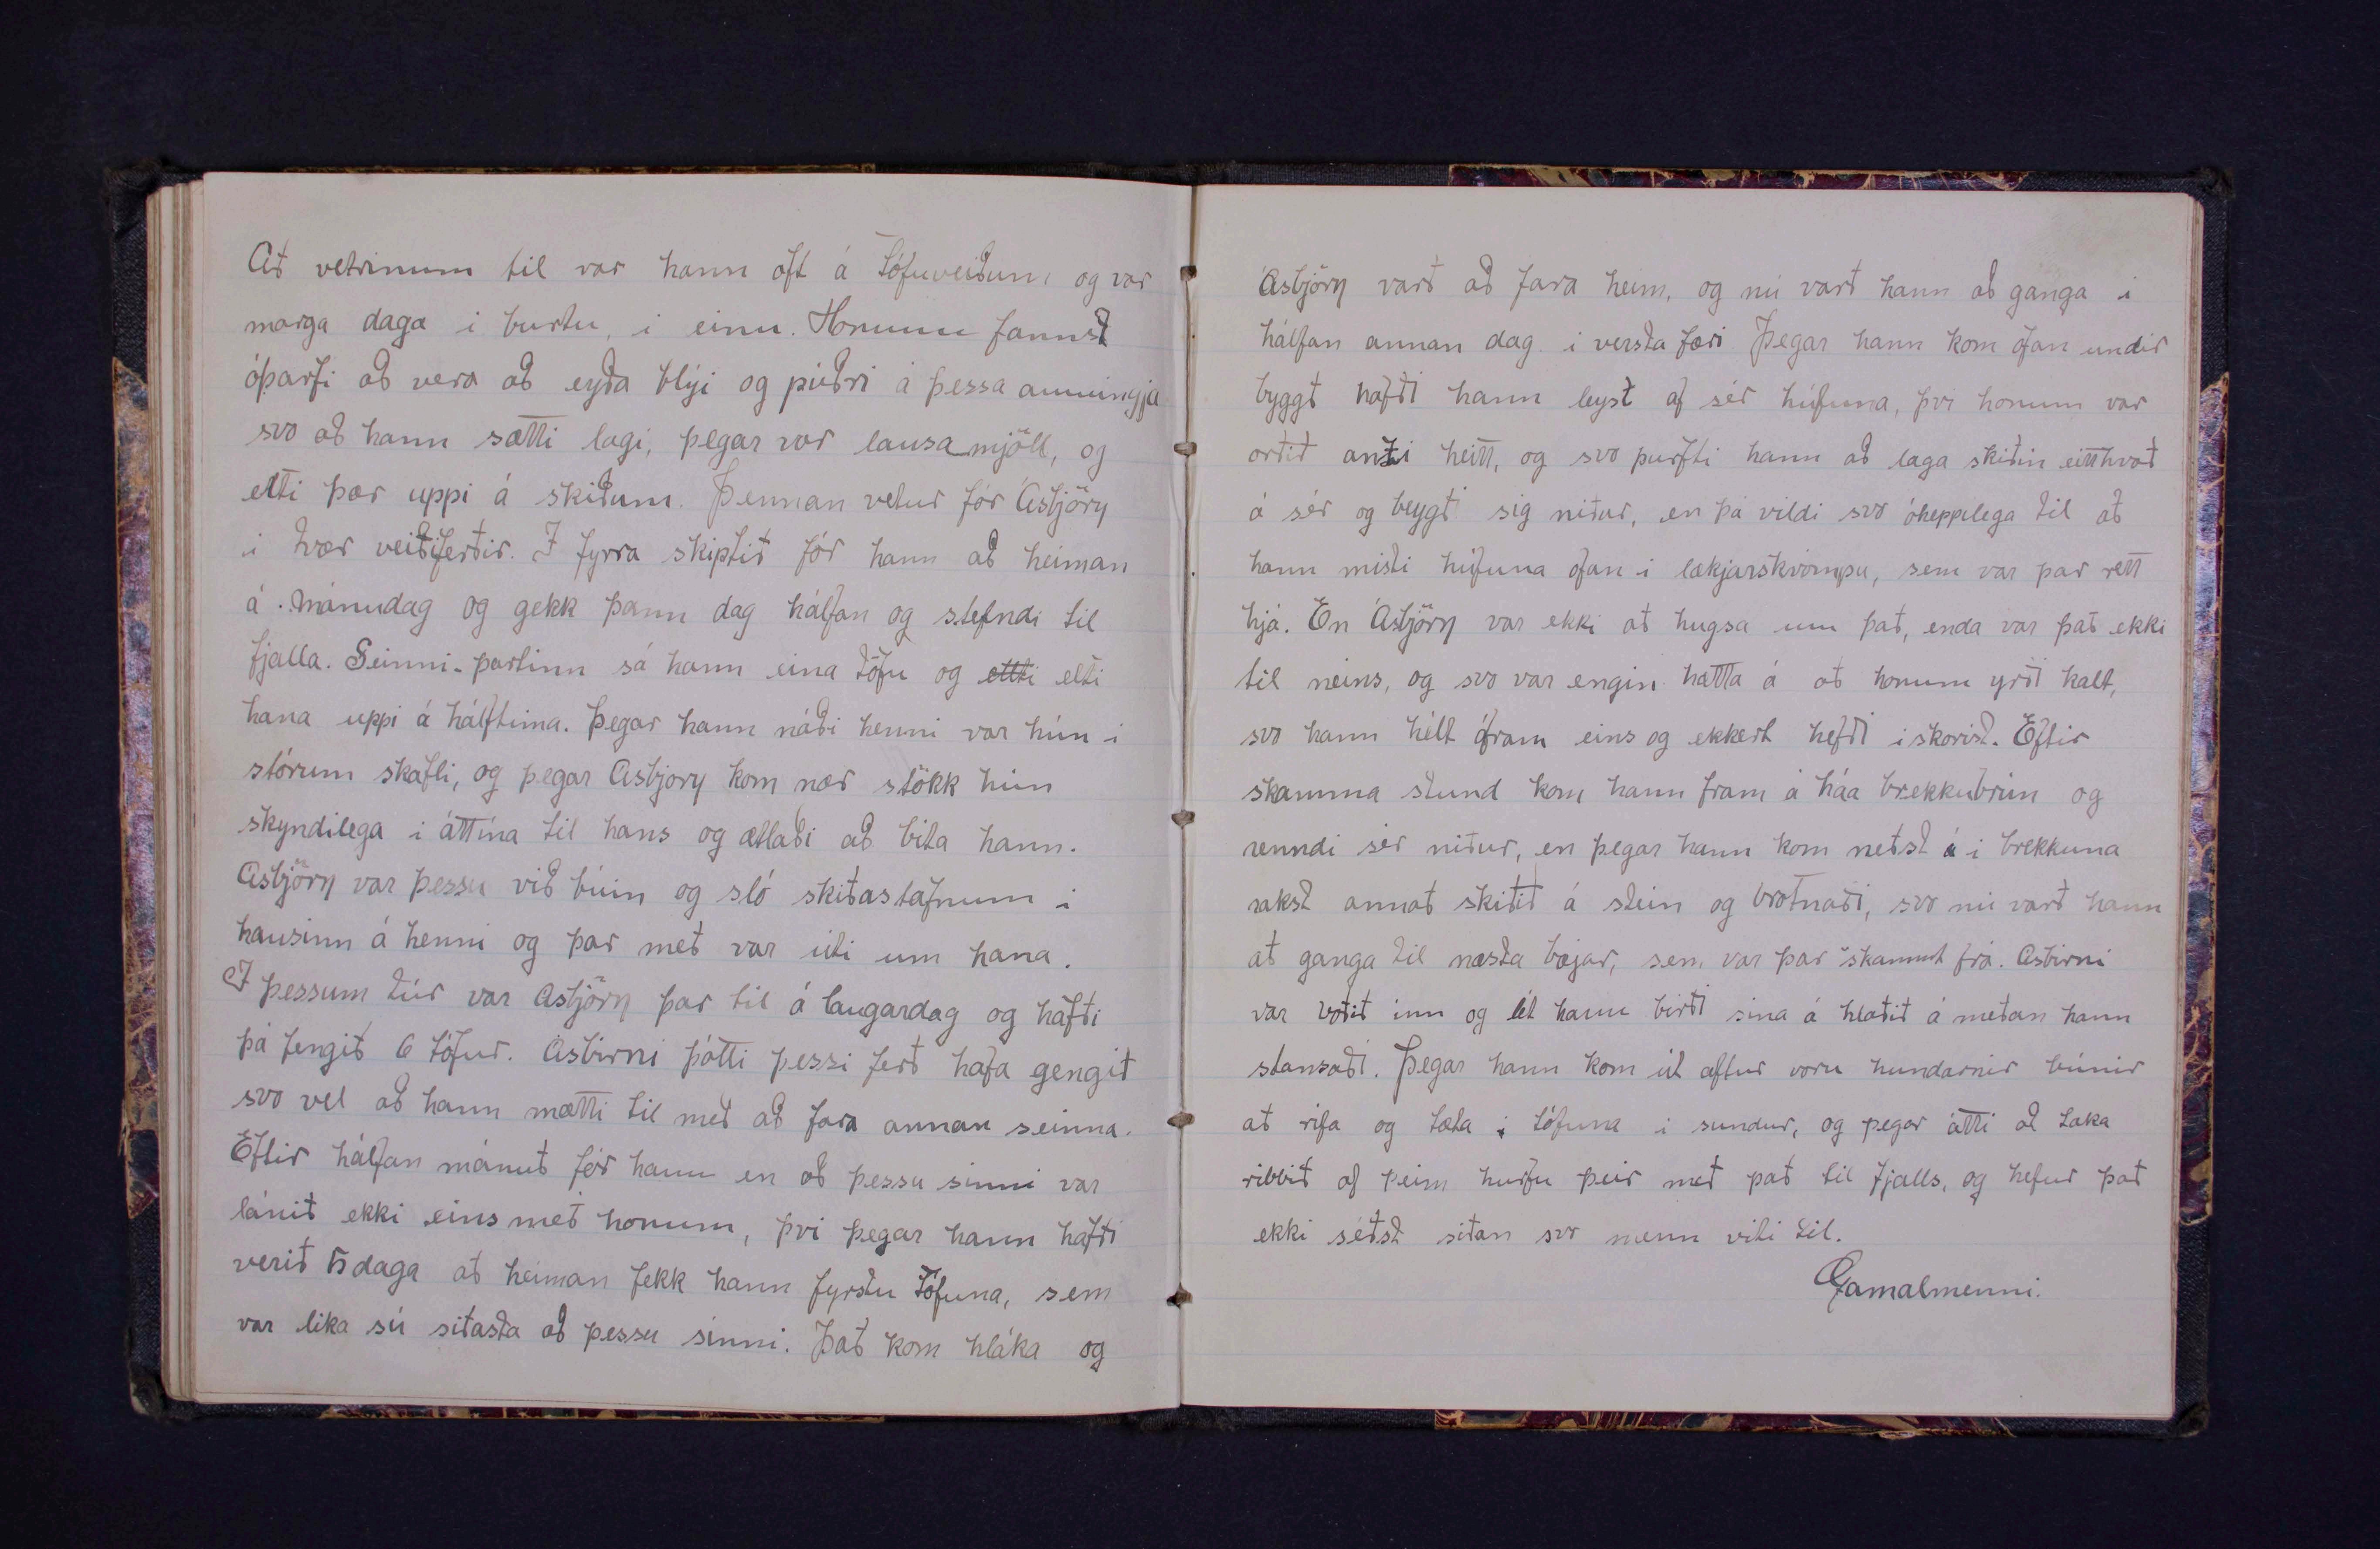 Að vetrinum til var hann oft á tófuveiðum, og var
marga daga i burtu, i einu. Honum fannst
óþarfi að vera að eyða blýi og púðri á þessa aumingja
svo að hann sætti lagi, þegar var lausamjöll, og
elti þær uppi á skiðum. Þennan vetur fór Ásbjörn
i tvær veiðiferðir. I fyrra skiptið fór hann að heiman
á mánudag og gekk þann dag hálfan og stefndi til
fjalla. Seinni-partinn sá hann eina tófu og ellti elti
hana uppi á hálftima. Þegar hann náði henni var hún i
stórum skafli, og þegar Asbjorn kom nær stökk hún
skyndilega i áttina til hans og ætlaði að bita hann.
Asbjörn var þessu við búin og sló skiðastafnum i
hausinn á henni og þar með var úti um hana.
I þessum túr var Asbjörn þar til á laugardag og hafði
þá fengið 6 tófur. Asbirni þótti þessi ferð hafa gengið
svo vel að hann mætti til með að fara annan seinna.
Eftir hálfan mánuð fór hann en að þessu sinni var
lánið ekki eins með honum, þvi þegar hann hafði
verið 5 daga að heiman fekk hann fyrstu tófuna, sem
var lika sú siðasta að þessu sinni. Það kom hláka og
Asbjörn varð að fara heim, og nú varð hann að ganga i
hálfan annan dag i versta færi Þegar hann kom ofan undir
byggð hafði hann leyst af sér húfuna, þvi honum var
orðið anzi heitt, og svo þurfti hann að laga skiðin eitthvað
á sér og beygði sig niður, en þá vildi svo óheppilega til að
hann misti húfuna ofan i lækjarskvompu, sem var þar rétt
hjá. En Ásbjörn var ekki að hugsa um það, enda var það ekki
til neins, og svo var engin hætta á að honum yrði kalt,
svo hann hélt áfram eins og ekkert hefði iskorist. Eftir
skamma stund kom hann fram á háa brekkubrún og
renndi sér niður, en þegar hann kom neðst á i brekkuna
rakst annað skiðið á stein og brotnaði, svo nú varð hann
að ganga til næsta bæjar, sem var þar skammt frá. Asbirni
var boðið inn og lét hann birði sina á hlaðið á meðan hann
stansaði. Þegar hann kom út aftur voru hundarnir búnir
að rifa og tæta i tófuna i sundur, og þegar átti að taka
ribbið af þeim hurfu þeir með það til fjalls, og hefur það
ekki séðst siðan svo menn viti til.
Gamalmenni.